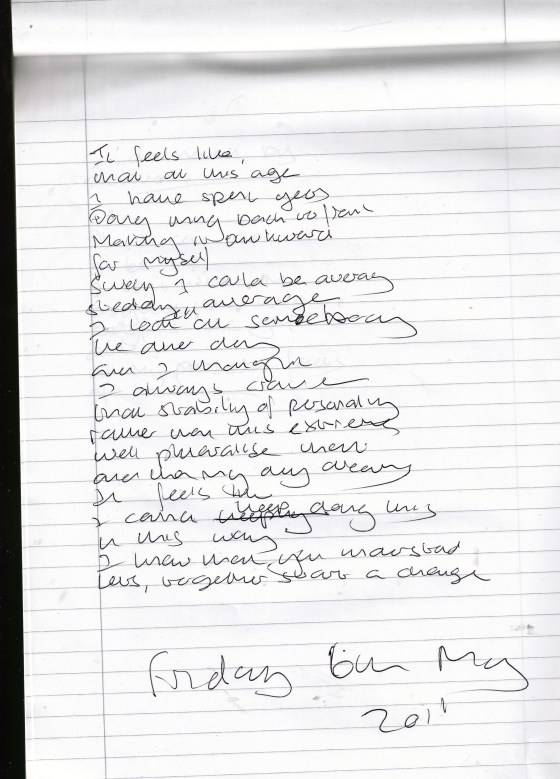 It feels like,
that at this age
I have spent years
Doing thing back to front
Making it awkward
for myself
Surely I could be average
steady average
I look at somebody
the other day
and I thought
I always crave
that stability of personality
rather than this extreme
well pluralise them
and
It feels like
I cannot keep doing this
in this way
I know that you understand
lets, together start a change
Friday 6th May
2011